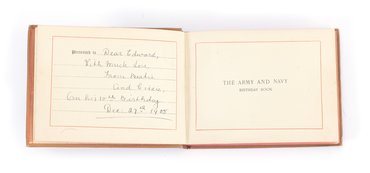 Presented to Dear Edward,
With much Love
From Mother
and Eileen,
On his 10th Birthday
Dec: 29th 1905
THE ARMY AND NAVY
BIRTHDAY BOOK